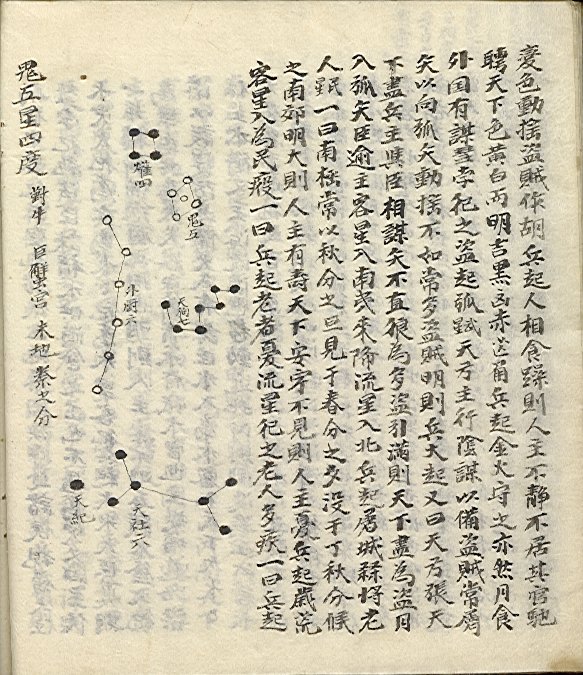 變色動搖盜賊作胡兵起人相食踩則人主不靜不居其宮馳
騁天下色黃白而明吉黑凶赤芒角兵起金火守之亦然月食
外国有謀彗孛犯之盜起弧弧天弓主行陰謀以備盜賊常屬
矢以向狐矢動搖不如常多盜賊明則兵大起又曰天弓張天
下盡兵主與臣相謀矢不直狼為多盜引滿則天下盡為盜月
入狐矢臣逾主客星入南夷來降流星入北兵起屠城殺將老
人一曰南極常以秋分之旦見于春分之夕沒于丁秋分候
之南郊明大則人主有壽天下安寧不見則人主憂兵起歲荒
客星入為民疫一曰兵起老者憂流星犯之老人多疾一曰兵起
爟四
鬼五
外廚六
天狗七
天社六
天紀
鬼五星四度 對牛 巨蟹宮 木地秦之分